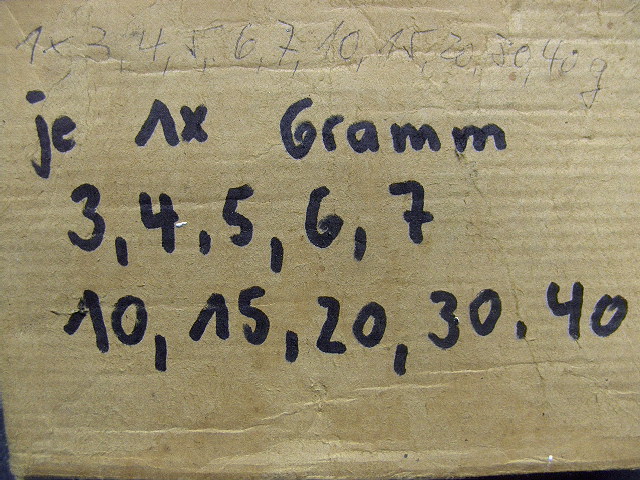 1x 3, 4, 5, 6, 7, 10, 15, 20, 30, 40 g
je 1x Gramm
3, 4, 5, 6, 7
10, 15, 20, 30, 40